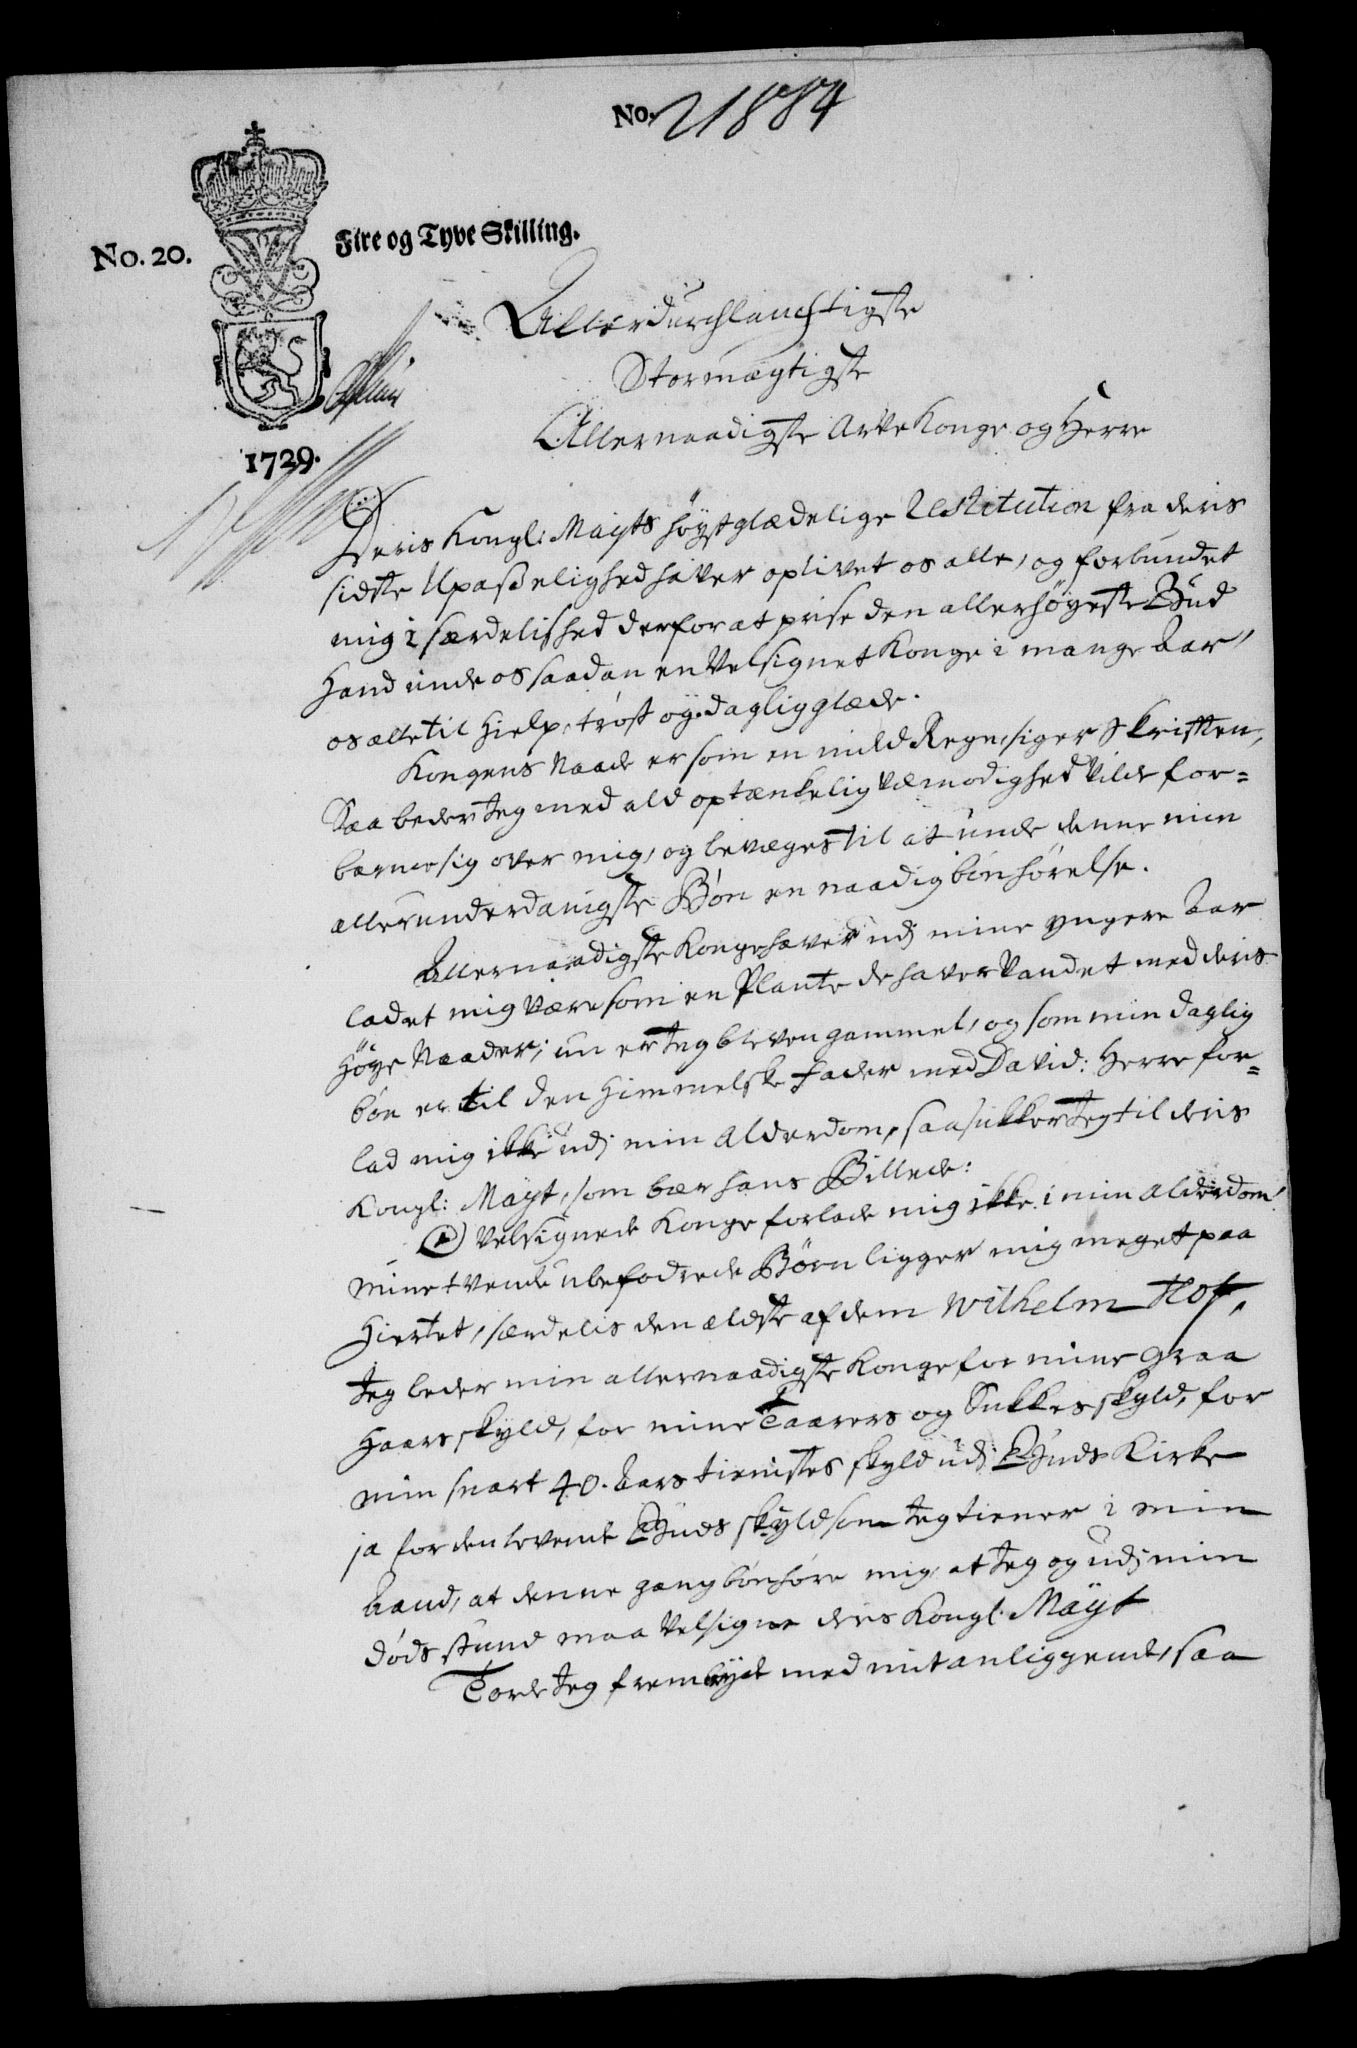 No. 21884
No. 20.
Fire og Tyve Skilling.
1729.
Allerdurchlauchtigste
Stormægtigste
Allernaadigste Arve Konge og Herre
Deris Kongl: Mayts høystglædelige Restitution fra deris
sidste Upasselighed haver oplivet os alle, og forbundet
mig i særdelished derfor at prise den allerhøyeste Gud
Hand unde os saadan en Velsignet Konge i mange Aar,
os alle til Hielp, trøst og daglig glæde.
Kongens Naade er som en mild Regn, siger Skriften,
Saa beder Jeg med ald optænkelig Ydmydighed Vilde for=
barme sig over mig, og bevæges til at unde denne min
allerunderdanigste Bøn en naadig bønhørelse.
Allernaadigste Konge haver udj mine yngere Aar
ladet mig være som en Plante de haver Vandet med deris
Høye Naader; nu er Jeg bleven gammel, og som min daglig
bøn er til den Himmelske Fader med David: Herre for=
lad mig ikke udj min Alderdom, saa sukker Jeg til deris
Kongl: Mayt, som bær hans Billede:
O Velsignede Konge forlade mig ikke i min Alderdom!
Mine tvende ubefodrede Børn ligger mig meget paa
Hiertet, særdelis den ældste af dem Wilhelm Hof,
Jeg beder min allernaadigste Konge for mine Graa
Haars skyld, for mine Taarers og Sukkes skyld, for
min snart 40. Aars tienistes skyld udj Guds Kirke
ja for den levende Guds skyld som Jeg tiener i min
Aand, at denne gang bønhøre mig, at Jeg og udj min
døds stund maa Velsigne deris Kongl. Mayt
Torde Jeg frembyde med mit anliggende, saa